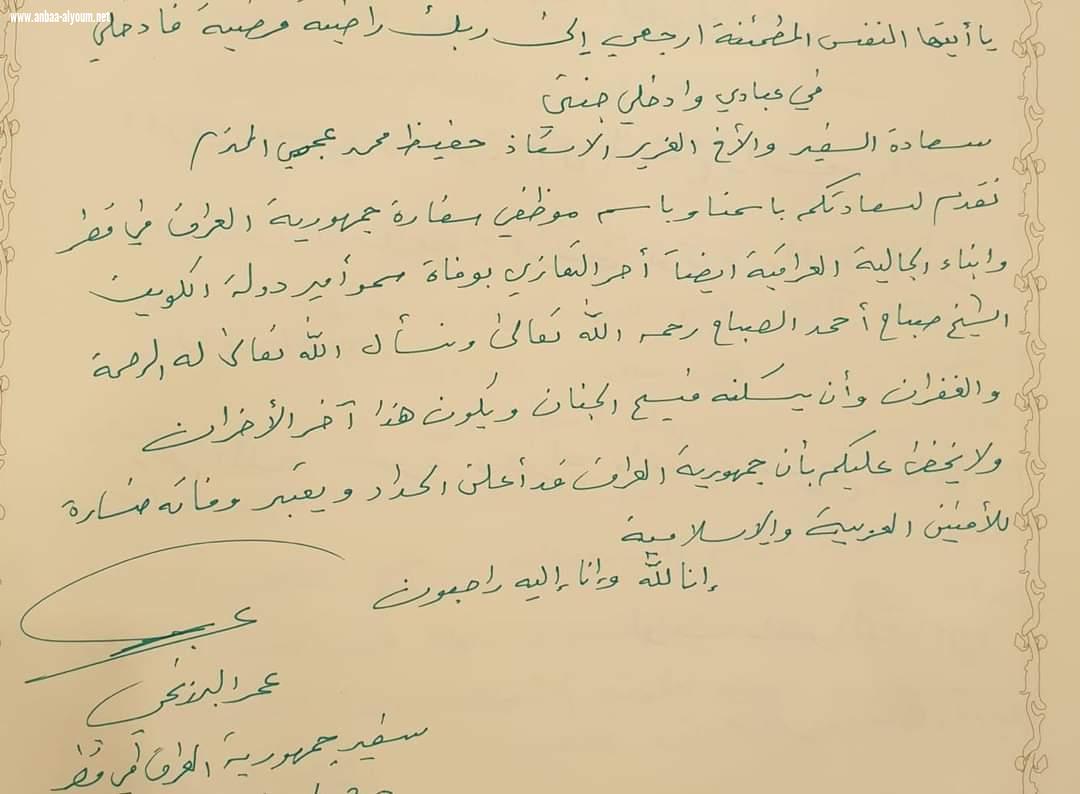 www.anbaa-alyoum.net
يا أيتها النفس المطمئنة ارجعي إلى ربك راضية مرضية فادخلي
في عبادي وادخلي جنتي
سعادة السفير والأخ العزير الاستاذ حفيظ محمد عجمي المحترم
نقدم لسعادتكم باسمنا وباسم موظفي سفارة جمهورية العراق في قطر
وابناء الجالية العراقية ايضاً أحر التعازي بوفاة سمو أمير دولة الكويت
الشيخ صباح أحمد الصباح رحمه الله تعالى ونسأل الله تعالى له الرحمة
والغفران وأن يسكنه فسيح الجنان ويكون هذا آخر الأحزان
ولا يخفى عليكم بأن جمهورية العراق قد أعلن الحداد ويعتبر وفاته خسارة
للأمتين العربية والإسلامية
إنا لله وإنا إليه راجعون
عمر البرزنجي
سفير جمهورية العراق في قطر